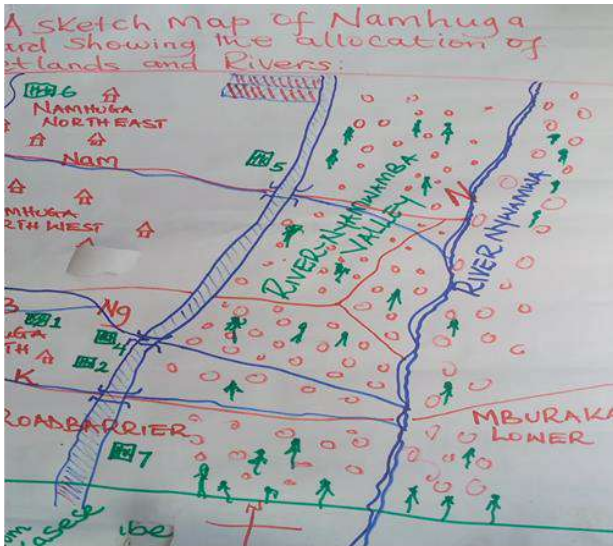 A sketch map of Namhuga
ard showing the allocation of
etlands and Rivers:
6
NAMHUGA
NORTHEAST
5
Nam
MHUGA
RTH WEST
RIVER-NYAMWAMBA
VALLEY
N
RIVER NYWAMWA
B
Ng
1
UGA
TH
4
2
K
ROADBARRIER
MBURAKA
LOWER
7
om
asese
ibe